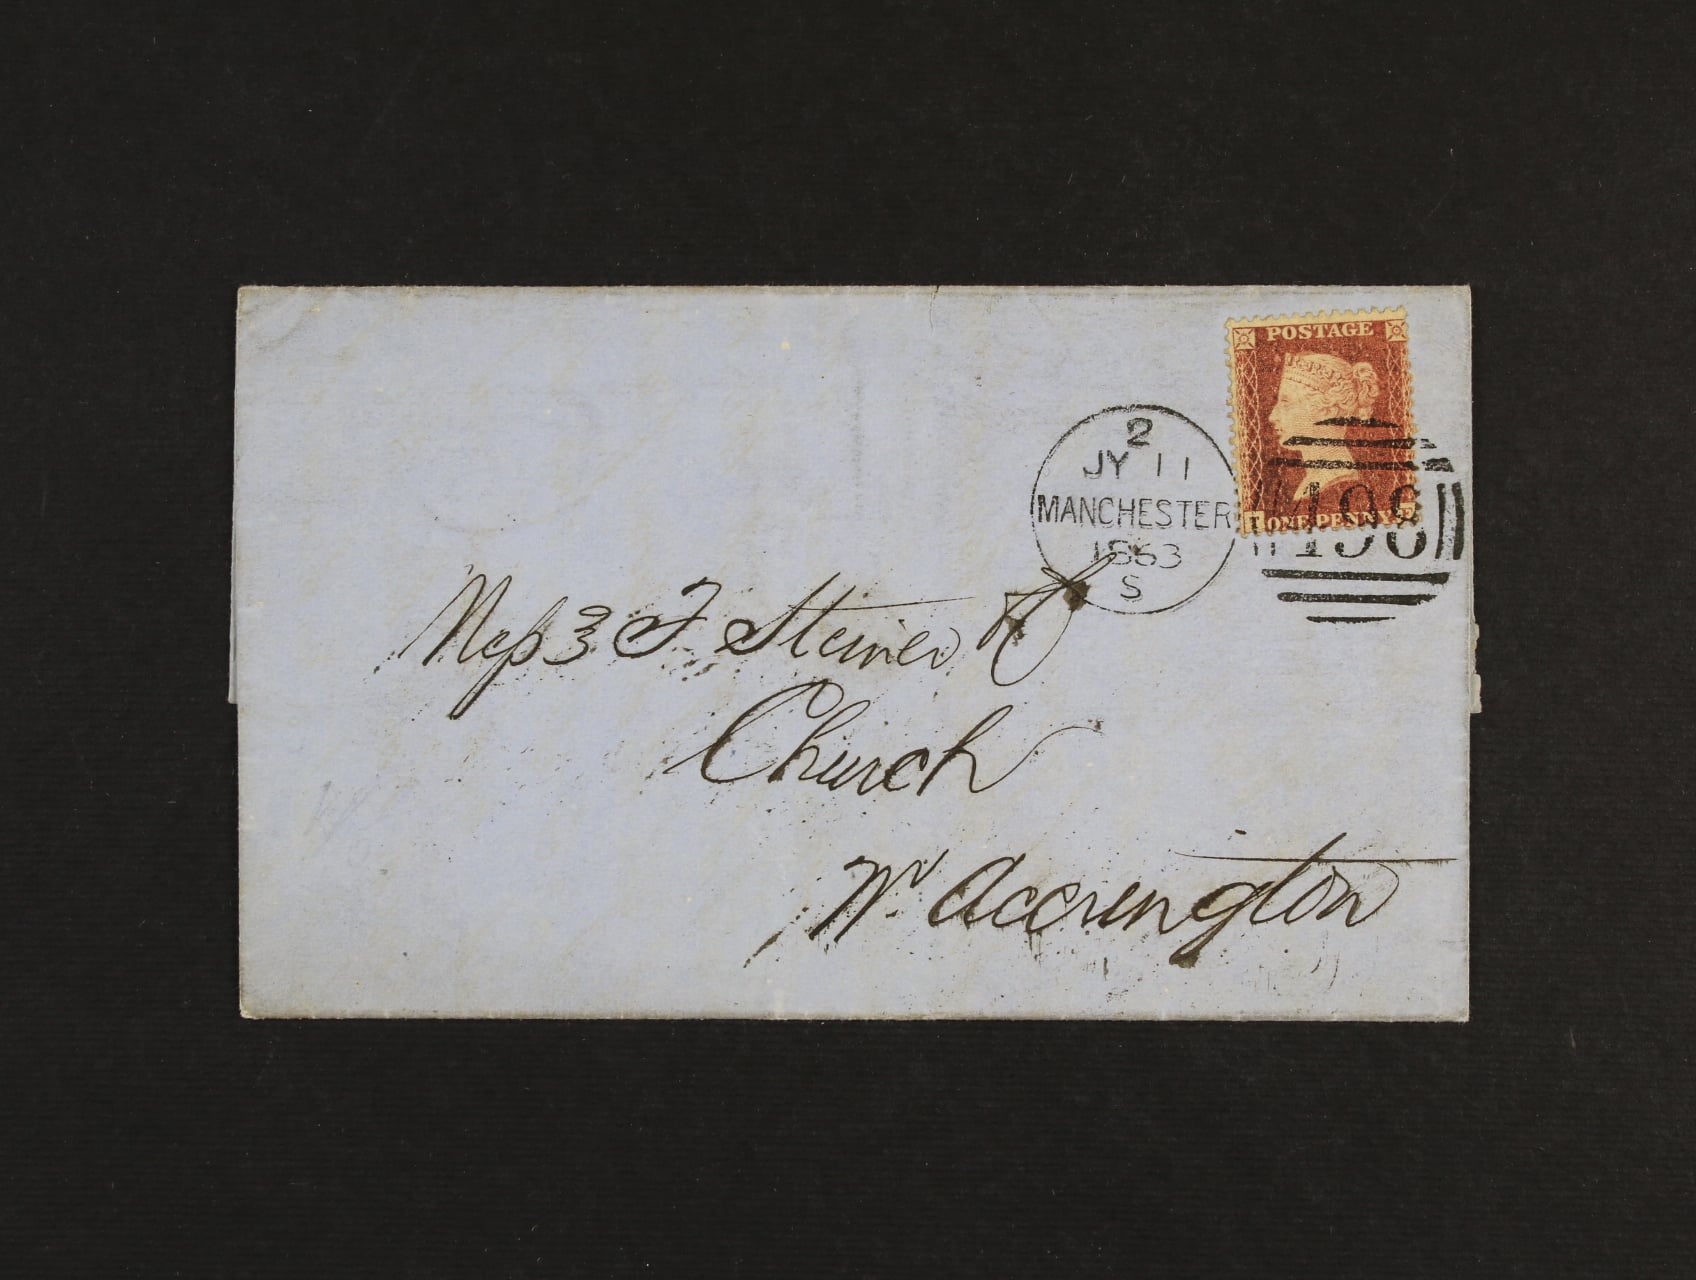 POSTAGE
T ONE PENNY E
2
JY 11
MANCHESTER
1863
S
498
Messrs F. Steiner & Co
Church
Nr Accrington